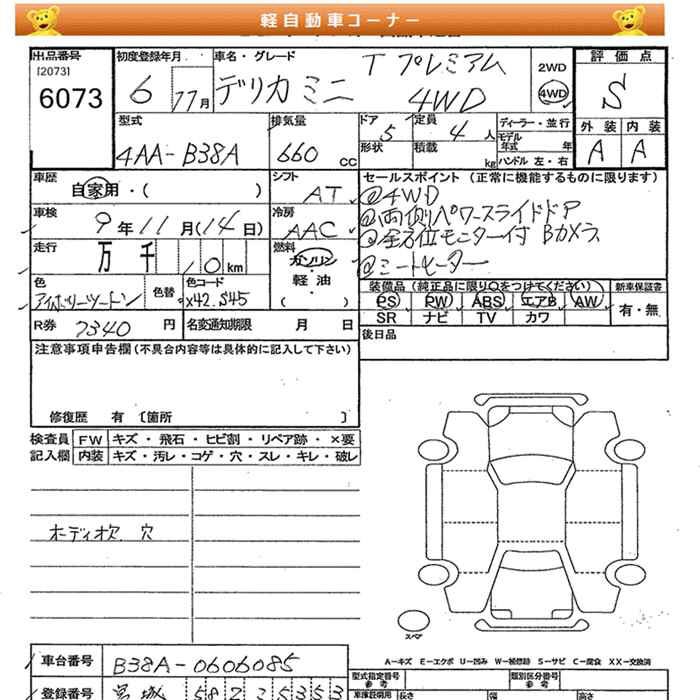 軽自動車コーナー
出品番号 初度登録年月 車名・グレード 2WD 評価点
[2073] T プレミアム
6073 6 11月 デリカミニ 4WD 4WD S
外装 内装
型式 排気量 ドア 定員 ディーラー・並行 A A
4AA-B38A 660 CC 5 4人 モデル年式 年
形状 積載 kg ハンドル 左・右
車歴 自家用・( ) シフト AT セールスポイント (正常に機能するものに限ります)
@4WD
車検 9年11月(14日) 冷房 AAC @両側パワースライドドア
@全方位モニター付 Bカメラ
走行 万 千 10km 燃料 ガソリン・軽油・( ) @シートヒーター
色 アイボリーツートン 色替 色コード X42.S45
装備品 (純正品に限り○をつけてください) 新車保証書
PS PW ABS エアB AW 有・無
SR ナビ TV カワ
R券 7340 円 名変通知期限 月 日 後日品
注意事項申告欄 (不具合内容等は具体的に記入して下さい)
修復歴 有 〔箇所 〕
検査員 FW キズ・飛石・ヒビ割・リペア跡・×要
記入欄 内装 キズ・汚レ・コゲ・穴・スレ・キレ・破レ
オーディオ欠 穴
スペア
A－キズ E－エクボ U－凹み W－補修跡 S－サビ C－腐食 XX－交換済
車台番号 B38A-0606085
型式指定番号 参考 類別区分番号 参考
登録番号 宮城 582 2 5353
車庫証明用 長さ 幅 高さ